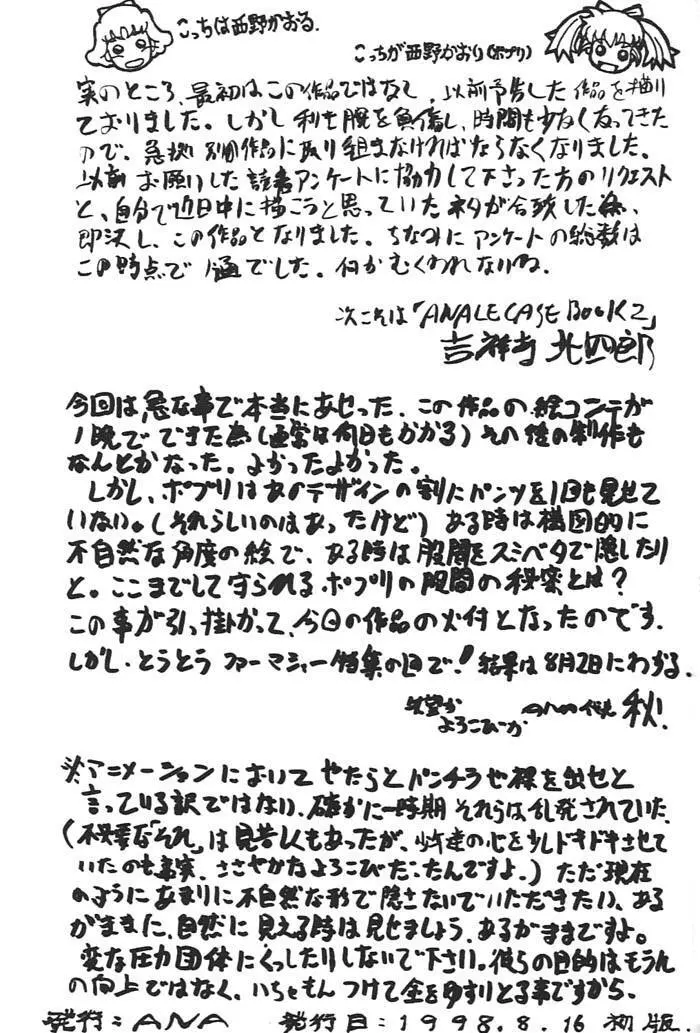 こっちは西野かおる.
こっちが西野かおり(ポプリ)
実のところ、最初はこの作品ではなく、以前予告した作品を描い
ておりました。しかし利き腕を負傷し、時間も少なくなってきた
ので、急拠 別個作品に取り組まなければならなくなりました。
以前お願いした読者アンケートに協力して下さった方のリクエスト
と、自分で近日中に描こうと思っていたネタが合致した為、
即決し、この作品となりました。ちなみにアンケートの総数は
この時点で1通でした。何かむくわれないね.
次こそは「ANALE CASE BOOK 2」
吉祥寺 北四郎
今回は急な事で本当にあせった.この作品の絵コンテが
1晩でできた為(通常は何日もかかる)その後の制作も
なんとかなった.よかったよかった。
しかし、ポプリはあのデザインの割にパンツを1回も見せて
いない。(それらしいのはあったけど)ある時は構図的に
不自然な角度の絵で、ある時は股間をスミベタで隠したり
と。ここまでして守られるポプリの股間の秘密とは?
この事が引っ掛かって、今回の作品の火付となったのです.
しかし・とうとうファーマシィー特集の回で!結果は8月2日にわかる.
よろこびーか
秋!
※アニメーションにおいてやたらとパンチラや裸を出せと
言っている訳ではない.確かに一時期それらは乱発されていた.
(不必要な“それ”は見苦しくもあったが、少年達の心を少しドキドキさせて
いたのも事実.ささやかなよろこびだったんですよ.)ただ現在
のようにあまりに不自然な形で隠さないでいただきたい、ある
がままに、自然に見える時は見せましょう.あるがままですよ。
変な圧力団体にくっしたりしないで下さい。彼らの目的はもうんん
の向上ではなく、いちゃもんつけて金をゆすりとる事ですから.
発行:ANA 発行日:1998.8.16 初版